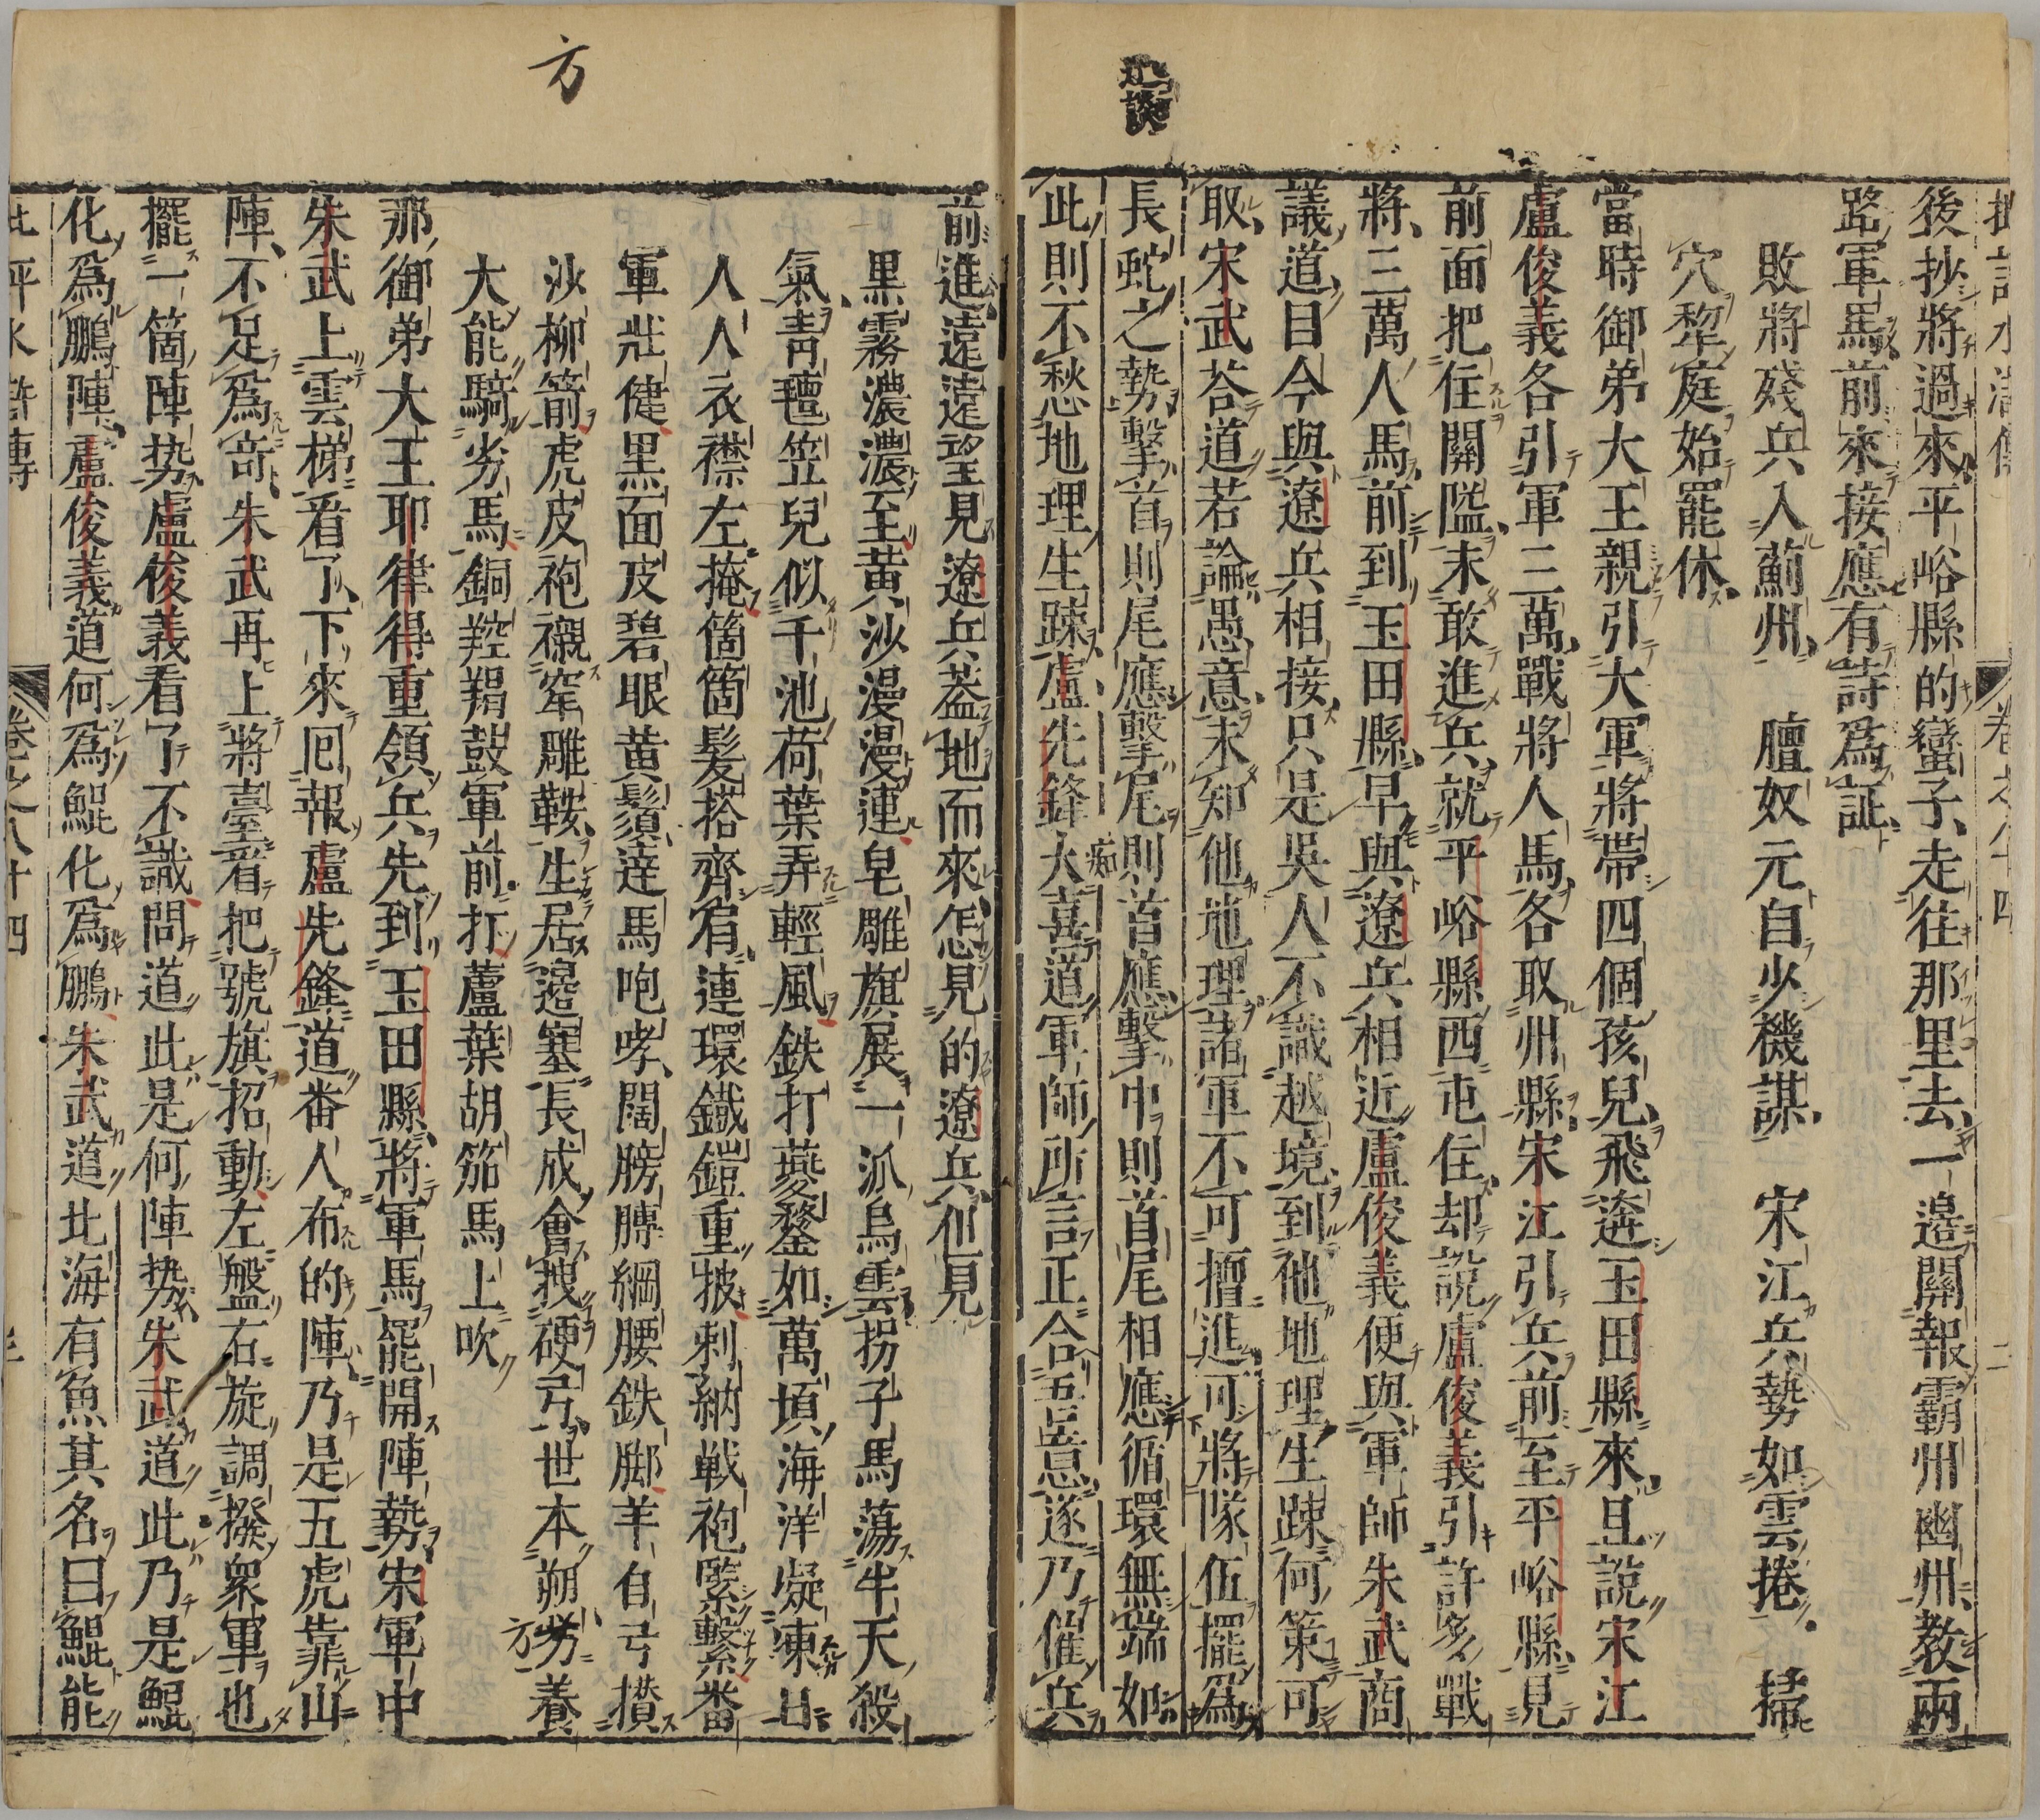 批評水滸傳 卷之八十四 二
後抄將過來平峪縣的蠻子走往那里去一邉關報霸州幽州教兩
路軍馬前來接應有詩爲証
敗將殘兵入薊州 膻奴元自少機謀 宋江兵勢如雲捲 掃
穴犂庭始罷休
當時御弟大王親引大軍將帶四個孩兒飛遴玉田縣來且說宋江
盧俊義各引軍三萬戰將人馬各取州縣宋江引兵前至平峪縣見
前面把住關隘未敢進兵就平峪縣西屯住却說盧俊義引許多戰
將三萬人馬前到玉田縣早與遼兵相近盧俊義便與軍師朱武商
議道目今與遼兵相接只是吳人不識越境到他地理生踈何策可
取宋武荅道若論愚意未知他地理諸軍不可擅進可將隊伍擺爲
長蛇之勢擊首則尾應擊尾則首應擊中則首尾相應循環無端如
此則不愁地理生踈盧先鋒大喜道軍師所言正合吾意遂乃催兵
痴
談
方
前進遠遠望見遼兵蓋地而來怎見的遼兵但見
黒霧濃濃至黃沙漫漫連皂雕旗展一派烏雲拐子馬蕩半天殺
氣青氊笠兒似千池荷葉弄輕風鉄打兜鍪如萬頃海洋凝凍日
人人衣襟左掩箇箇髮搭齊肩連環鐵鎧重披刺納戦袍緊繫番
軍壯健黒面皮碧眼黄鬚達馬咆哮闊膀膊鋼腰鉄脚羊角弓攅
沙柳箭虎皮袍襯窄雕鞍生居邉塞長成會拽硬弓世本朔方養
方
大能騎劣馬銅羫羯鼓軍前打蘆葉胡笳馬上吹
那御弟大王耶律得重領兵先到玉田縣將軍馬罷開陣勢宋軍中
朱武上雲梯看了下來囘報盧先鋒道番人布的陣乃是五虎靠山
陣不足爲奇朱武再上將臺看把號旗招動左盤右旋調撥衆軍也
擺一箇陣势盧俊義看了不識問道此是何陣势朱武道此乃是鯤
化爲鵬陣盧俊義道何爲鯤化爲鵬朱武道北海有魚其名曰鯤能
批評水滸傳 卷之八十四